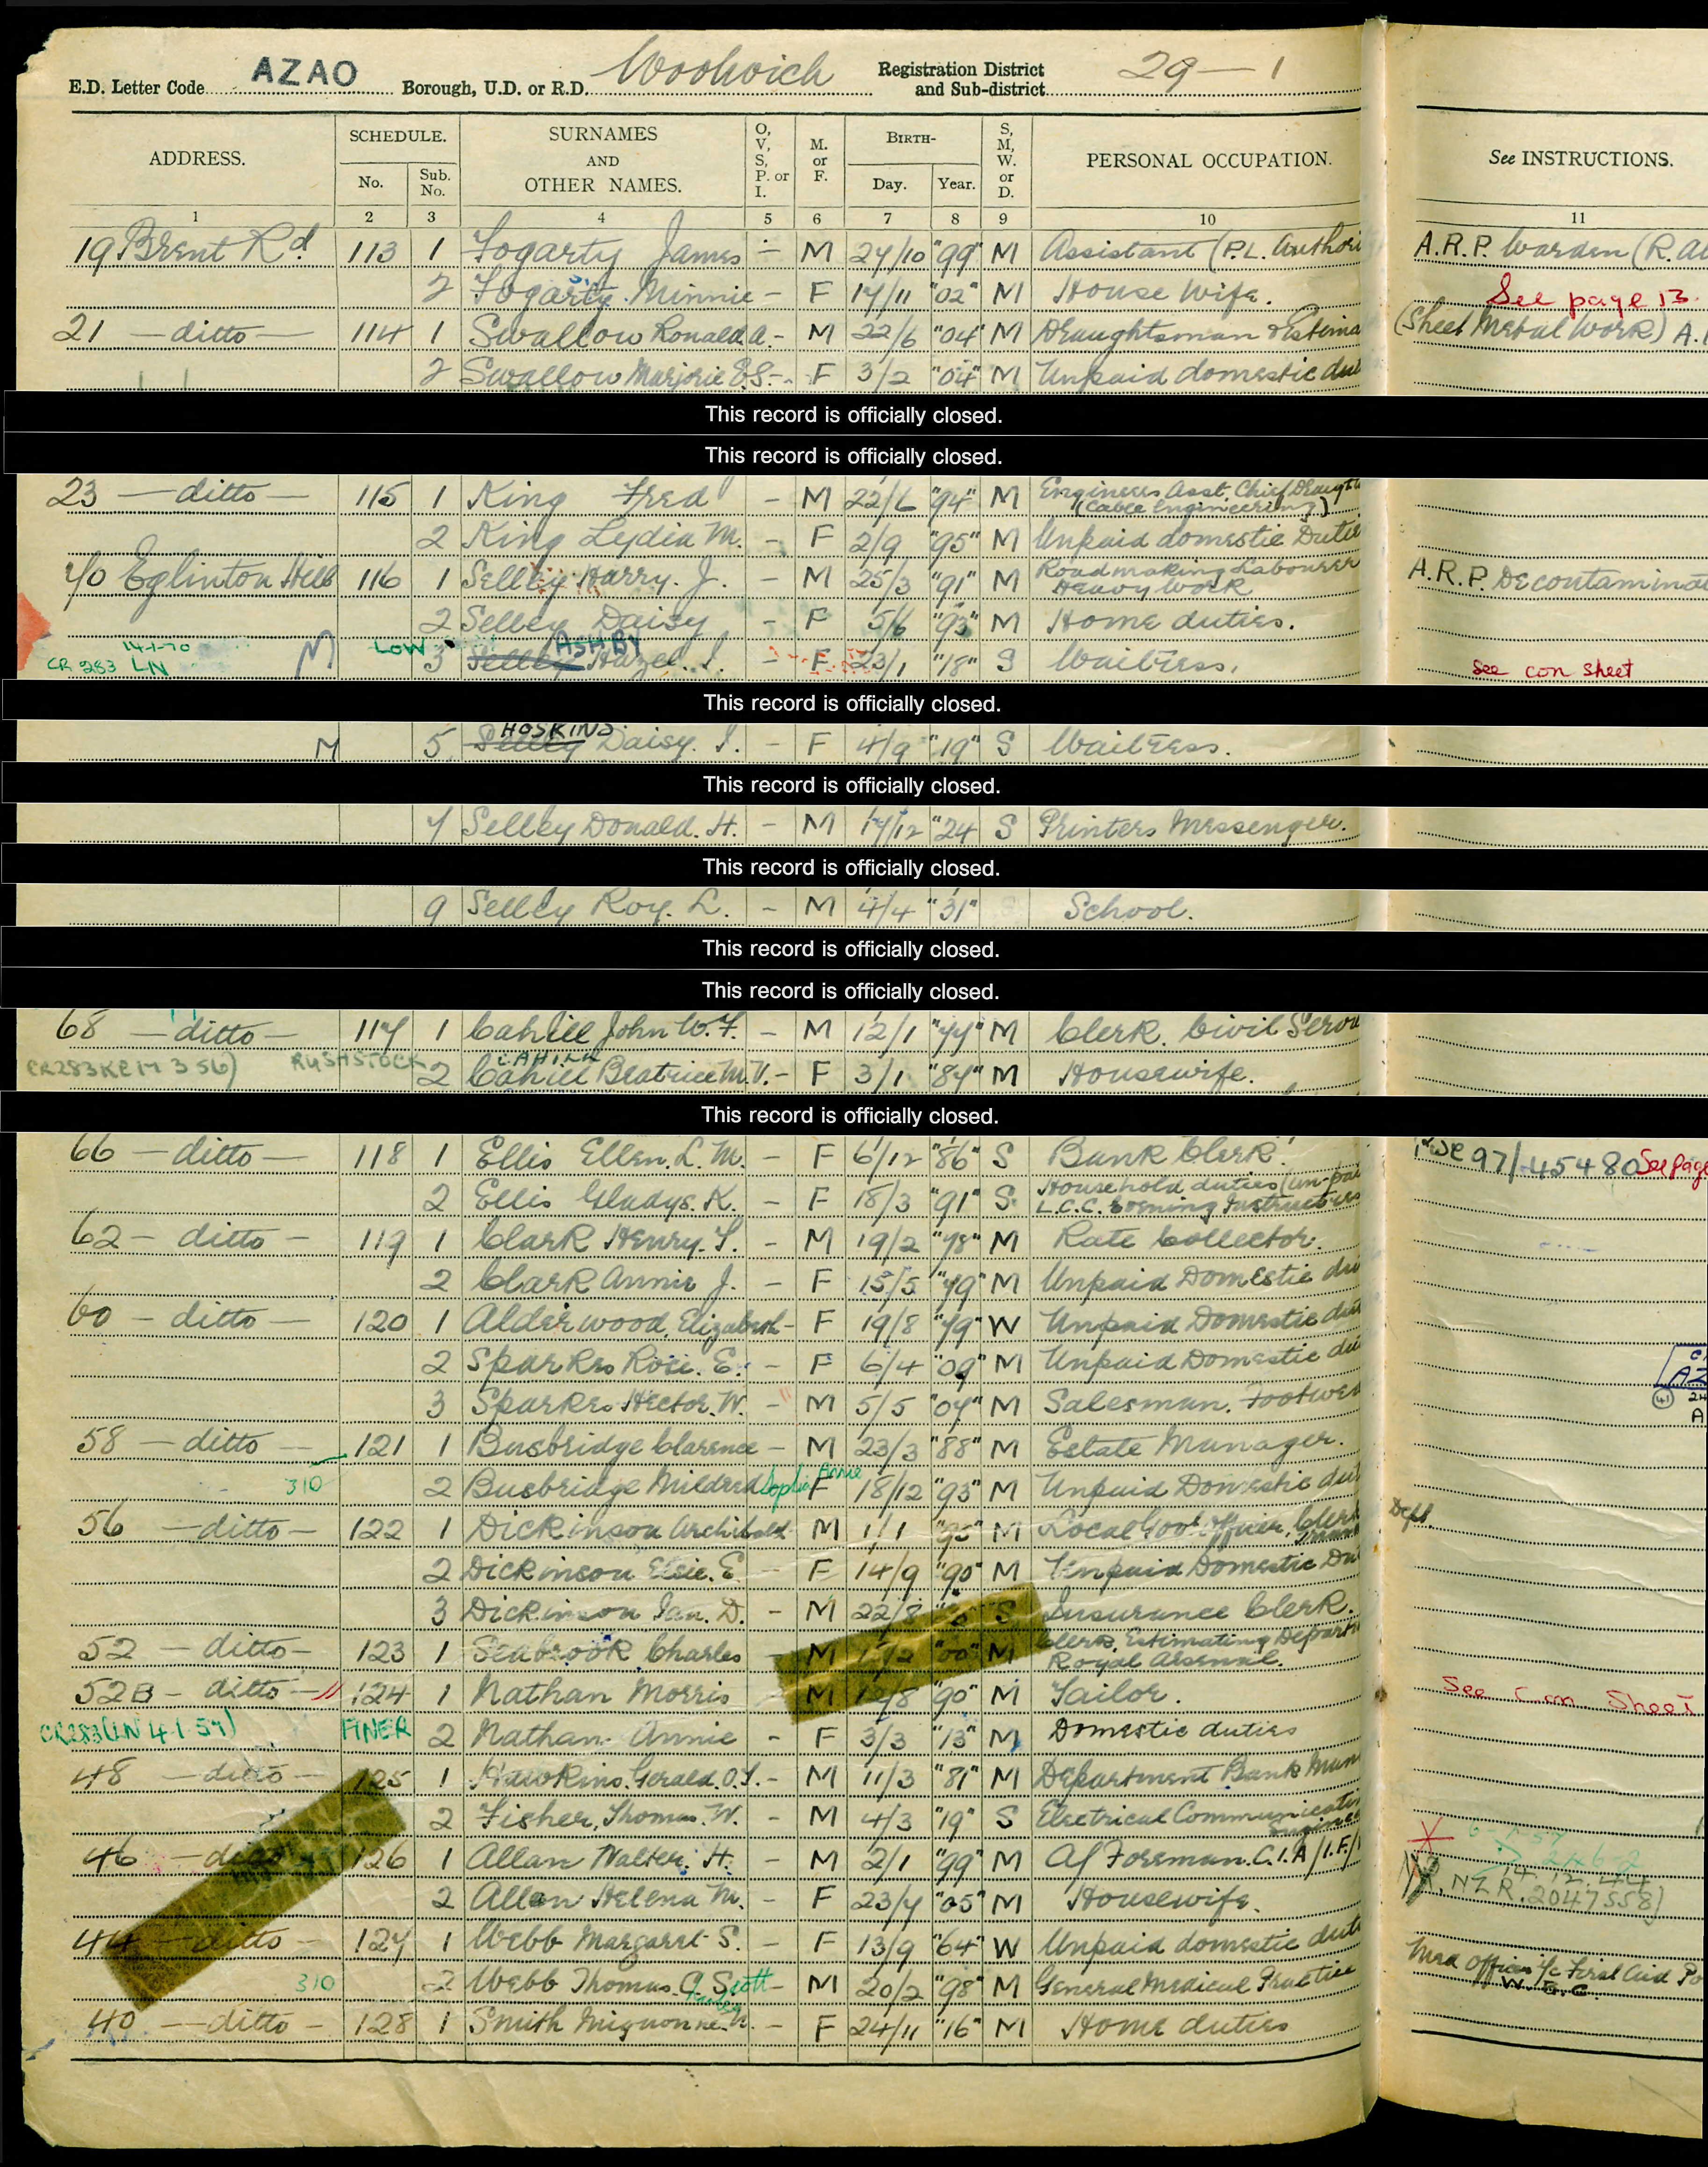 E.D. Letter Code AZAO Borough, U.D. or R.D. Woolwich Registration District and Sub-district 29—1
ADDRESS. SCHEDULE. No. Sub. No. SURNAMES AND OTHER NAMES. O, V, S, P. or I. M. or F. BIRTH- Day. Year. S, M, W. or D. PERSONAL OCCUPATION. See INSTRUCTIONS.
1 2 3 4 5 6 7 8 9 10 11
19 Brent Rd. 113 1 Fogarty James - M 27/10 "99" M Assistant (P.L. Authori A.R.P. Warden
2 Fogarty Minnie - F 17/11 "02" M House Wife. See page 13.
21 — ditto — 114 1 Swallow Ronald A. - M 22/6 "04" M Draughtsman & Estima (Sheet Metal Work)
2 Swallow Marjorie E.S. - F 3/2 "04" M Unpaid domestic dut
This record is officially closed.
This record is officially closed.
23 — ditto — 115 1 King Fred - M 22/6 "94" M Engineers Asst. Chief Draught
(Cable Engineering)
2 King Lydia M. - F 2/9 "95" M Unpaid domestic Dutie
70 Eglinton Hill 116 1 Selley Harry. J. - M 25/3 "91" M Roadmaking Labourer A.R.P. Decontaminat
Heavy Work
2 Selley Daisy - F 5/6 "93" M Home duties.
14-1-70 LOW ASHBY
CR 283 LN M 3 Selley Hazel. I. - F 23/1 "18" S Waitress. see con sheet
This record is officially closed.
HOSKINS
M 5 Selley Daisy. I. - F 4/9 "19" S Waitress.
This record is officially closed.
7 Selley Donald. H. - M 17/12 "24" S Printers Messenger.
This record is officially closed.
9 Selley Roy. L. - M 4/4 "31" School.
This record is officially closed.
This record is officially closed.
68 — ditto — 117 1 Cahill John W.F. - M 12/1 "77" M Clerk. Civil Serva
CAHILL
CR283 KE 17 3 56) RUSHSTOCK 2 Cahill Beatrice M.V. - F 3/1 "87" M Housewife.
This record is officially closed.
66 — ditto — 118 1 Ellis Ellen. L. M. - F 6/12 "86" S Bank Clerk. 97/45480 See page
2 Ellis Gladys. K. - F 18/3 "91" S Household duties (un-pai
L.C.C. Evening Instructress
62 — ditto — 119 1 Clark Henry. T. - M 19/2 "78" M Rate Collector.
2 Clark Annie J. - F 15/5 "79" M Unpaid Domestic du
60 — ditto — 120 1 Alderwood, Elizabeth - F 19/8 "79" W Unpaid Domestic dut
2 Sparkes Rosie. E. - F 6/4 "09" M Unpaid Domestic du
3 Sparkes Hector. W. - M 5/5 "07" M Salesman. Footwea
58 — ditto — 121 1 Busbridge Clarence - M 23/3 "88" M Estate Manager.
310 2 Busbridge Mildred Sophia Annie F 18/12 "93" M Unpaid Domestic dut
56 — ditto — 122 1 Dickinson Archibald - M 1/1 "95" M Local Govt. Officer, Clerk Dept.
2 Dickinson Elsie. E. - F 14/9 "90" M Unpaid Domestic Du
3 Dickinson Ian. D. - M 22/8 S Insurance Clerk.
52 — ditto — 123 1 Seabrook Charles - M "00" M Clerk, Estimating Departm
Royal Arsenal.
52B — ditto — 124 1 Nathan Morris M "90" M Tailor. See Con Sheet
CR283 (LN 4-1-57) FINER 2 Nathan Annie - F 3/3 "13" M Domestic duties
48 — ditto — 125 1 Hawkins. Gerald. O.T. - M 11/3 "81" M Department Bank Man
2 Fisher, Thomas. W. - M 4/3 "19" S Electrical Communicatio
Engineer
46 — ditto — 126 1 Allan Walter. H. - M 2/1 "99" M A/ Foreman. C.I.A/I.F./
2 Allan Helena M. - F 23/7 "05" M Housewife. NZR. 2047558)
44 — ditto — 127 1 Webb Margaret S. - F 13/9 "64" W Unpaid domestic dut
310 2 Webb Thomas. C. Scott - M 20/2 "98" M General Medical Practice Med Officer i/c First Aid Po
40 — ditto — 128 1 Smith Mignonne. - F 24/11 "16" M Home duties